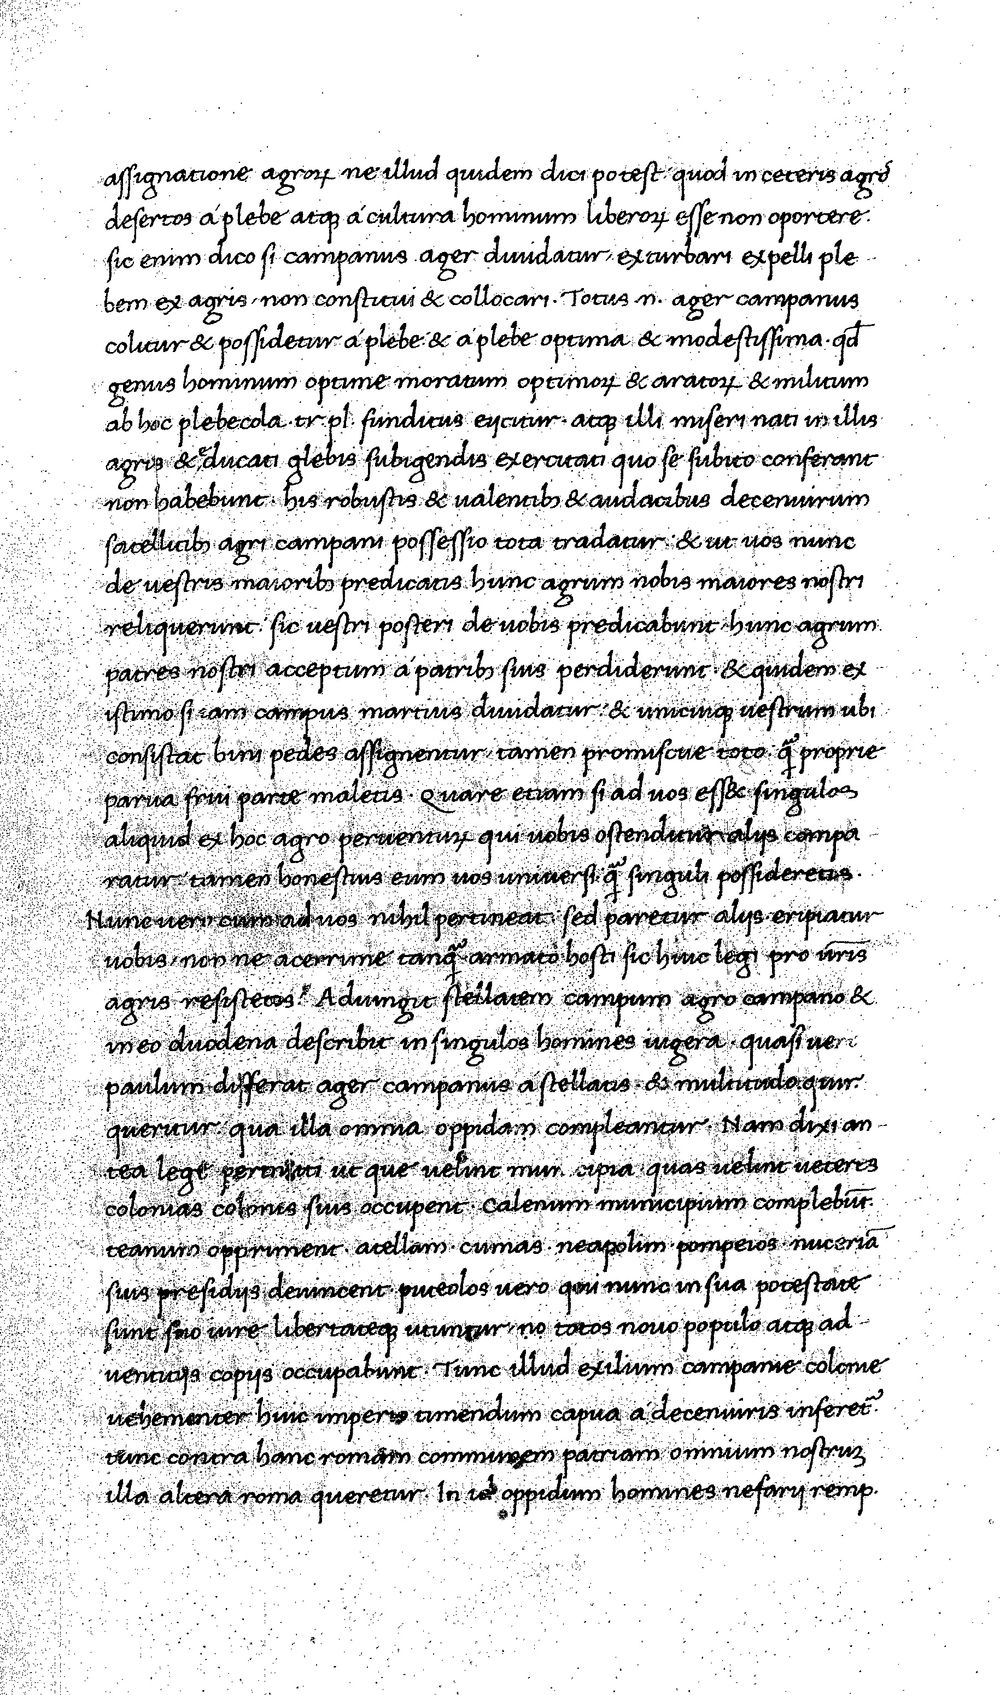 assignatione agroꝝ ne illud quidem dici potest quod in ceteris agrō
desertos á plebe atqꝫ á cultura hominum liberoꝝ esse non oportere.
sic enim dico si campanus ager diuidatur, exturbari expelli ple
bem ex agris, non constitui & collocari. Totus .n. ager campanus
colitur & possidetur á plebe & á plebe optima & modestissima. qđ
genus hominum optime moratum optimoꝝ & aratoꝝ & militum
ab hoc plebecola tr. pl. funditus eijcitur. atqꝫ illi miseri nati in illis
agris & educati glebis subigendis exercitati quo se subito conferant
non habebunt. his robustis & ualentibꝫ & audacibus decemuirum
satellitibꝫ agri campani possessio tota tradatur. & ut uos nunc
de uestris maioribꝫ predicatis hunc agrum nobis maiores nostri
reliquerunt. sic uestri posteri de uobis predicabunt. hunc agrum
patres nostri acceptum á patribꝫ suis perdiderunt. & quidem ex
istimo si iam campus martius diuidatur. & unicuiqꝫ uestrum ubi
consistat bini pedes assignentur, tamen promiscue toto q̄ȝ proprie
parua frui parte maletis. Quare etiam si ad uos esset singulos
aliquid ex hoc agro peruenturꝝ qui uobis ostenditur alijs compa
ratur. tamen honestius eum uos uniuersi q̄ȝ singuli possideretis.
Nunc uero cum ad uos nihil pertineat. sed paretur alijs eripiatur
uobis, non ne acerrime tanq̄ȝ armato hosti sic huic legi pro ur̄is
agris resistetis? Adiungit stellatem campum agro campano &
in eo duodena describit in singulos homines iugera. quasi uero
paulum differat ager campanus a stellatis. & multitudo quir.
queritur qua illa omnia oppida compleantur. Nam dixi an-
tea lege permitti ut que uelint municipia quas uelint ueteres
colonias colonis suis occupent. Calenum municipium complebūt.
teanum oppriment. atellam cumas neapolim pompeios nuceriā
suis presidijs deuincent. puteolos uero qui nunc in sua potestate
sunt suo iure libertateqꝫ utuntur, no totos nouo populo atqꝫ ad-
uentitijs copijs occupabunt. Tunc illud exilium campanie colonie
uehementer huic imperio timendum capua á decemuiris inferet̃.
tunc contra hanc romam communem patriam omnium nostruꝫ
illa altera roma queretur. In id oppidum homines nefarij remp.